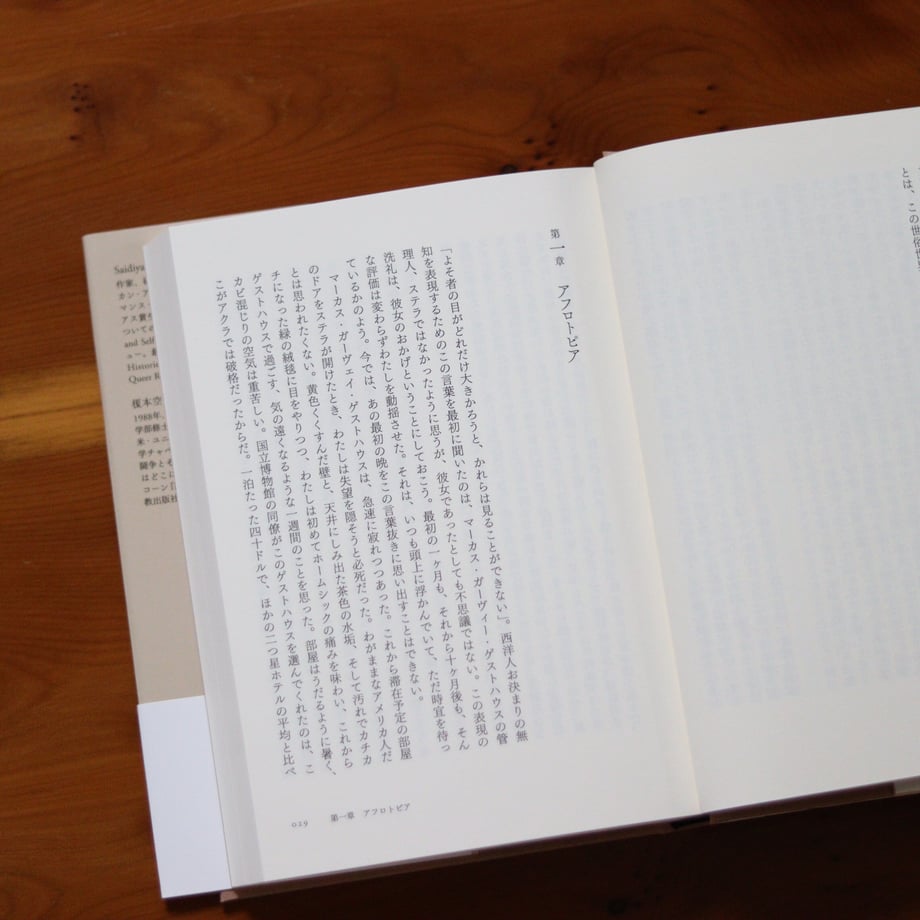 とは、この世俗
第一章 アフロトピア
「よそ者の目がどれだけ大きかろうと、かれらは見ることができない」。西洋人お決まりの無
知を表現するためのこの言葉を最初に聞いたのは、マーカス・ガーヴィー・ゲストハウスの管
理人、ステラではなかったように思うが、彼女であったとしても不思議ではない。この表現の
洗礼は、彼女のおかげということにしておこう。最初の一ヶ月も、それから十ヶ月後も、そん
な評価は変わらずわたしを動揺させた。それは、いつも頭上に浮かんでいて、ただ時宜を待っ
ているかのよう。今では、あの最初の晩をこの言葉抜きに思い出すことはできない。
マーカス・ガーヴェイ・ゲストハウスは、急速に寂れつつあった。これから滞在予定の部屋
のドアをステラが開けたとき、わたしは失望を隠そうと必死だった。わがままなアメリカ人だ
とは思われたくない。黄色くくすんだ壁と、天井にしみ出た茶色の水垢、そして汚れでカチカ
チになった緑の絨毯に目をやりつつ、わたしは初めてホームシックの痛みを味わい、これから
ゲストハウスで過ごす、気の遠くなるような一週間のことを思った。部屋はうだるように暑く、
カビ混じりの空気は重苦しい。国立博物館の同僚がこのゲストハウスを選んでくれたのは、こ
こがアクラでは破格だったからだ。一泊たった四十ドルで、ほかの二つ星ホテルの平均と比べ
029 第一章 アフロトピア
Saidiya
作家、
カン・ア
マンス・
アス賞
ついての
and Self
ュー。
Historic
Queer R
榎本空
1988年、
学部修士
米・ユニ
学チャペ
闘争とそ
はどこに
コーン『
教出版社